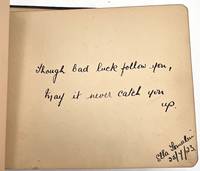 Though bad luck follow you,
May it never catch you
up.
Ella
25/4/23